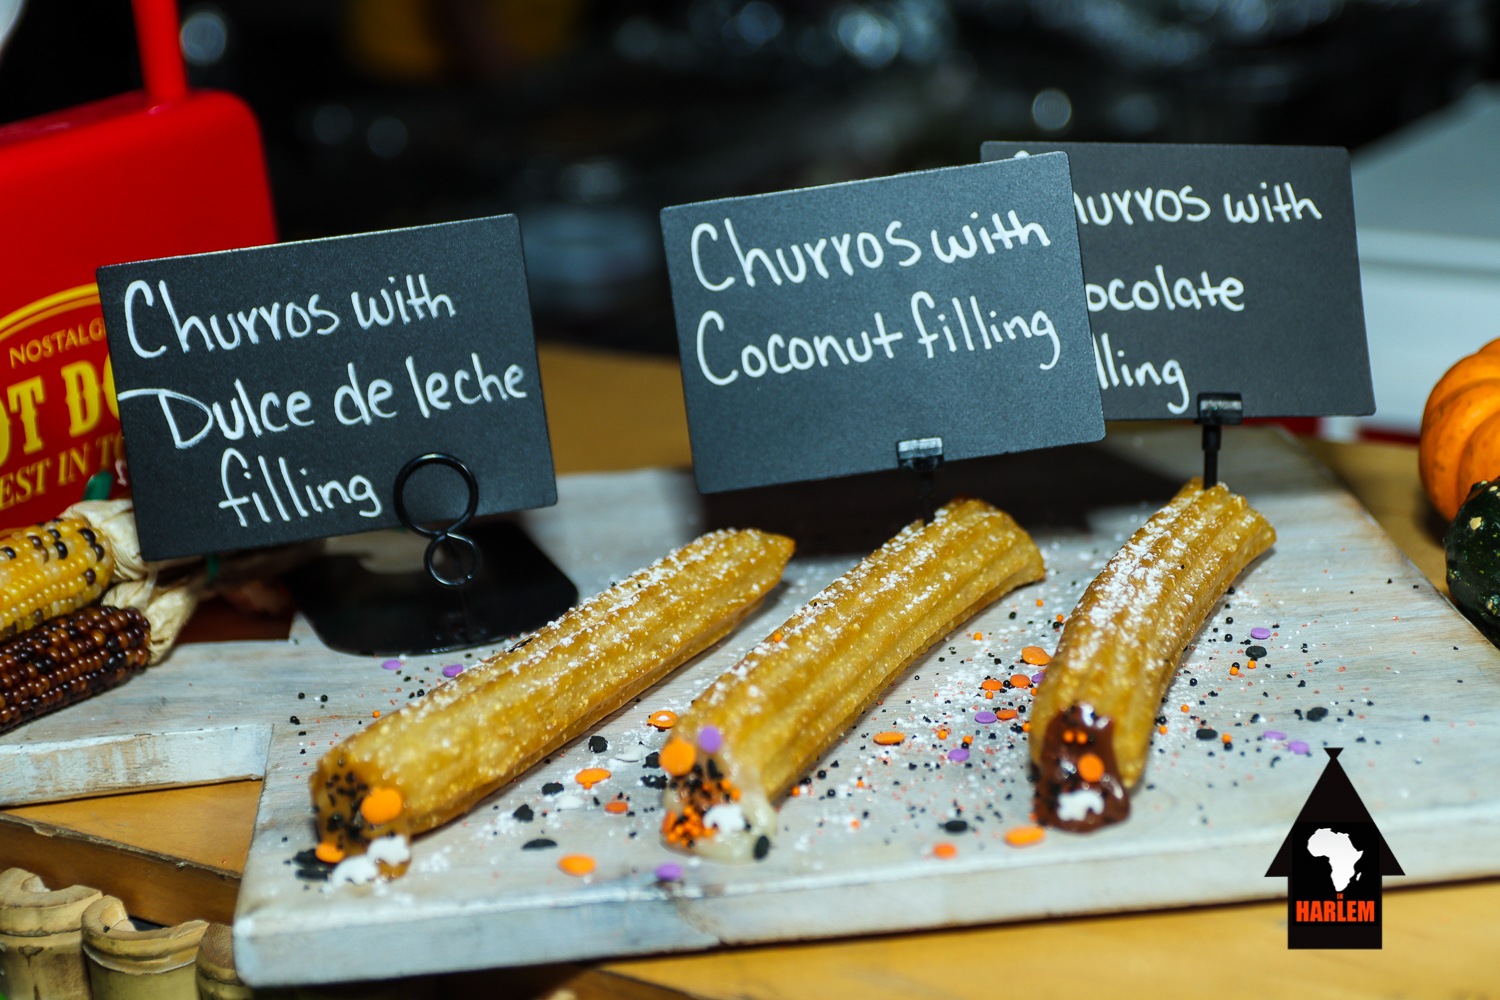 NOSTALG
OT DO
EST IN TO
Churros with
Dulce de leche
filling
Churros with
Coconut filling
hurros with
ocolate
lling
IN
HARLEM